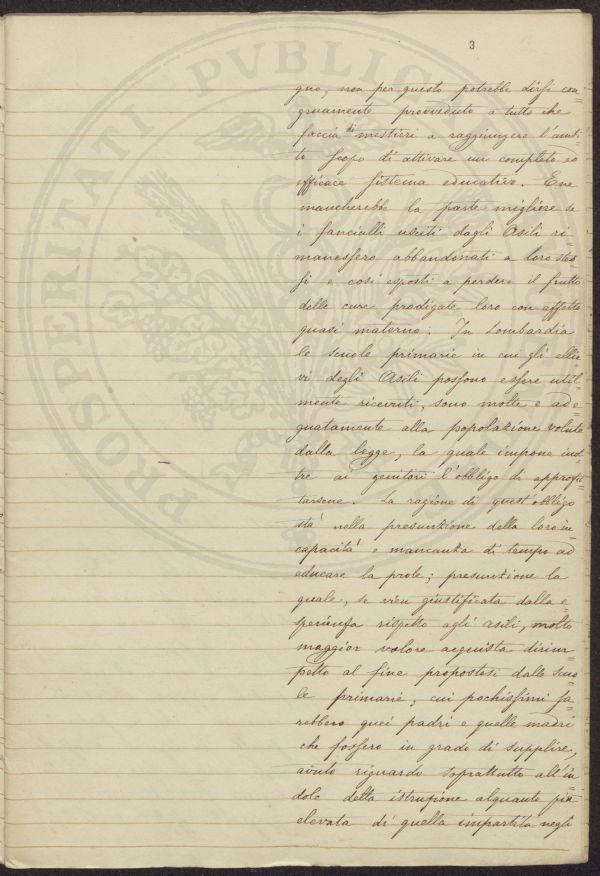 3
gno, non per questo potrebbe dirsi con=
gruamente provveduto a tutto che
faccia di mestieri a raggiungere l'ambi=
to scopo di attivare un completo ed
efficace sistema educativo. E ne
mancherebbe la parte migliore se
i fanciulli usciti dagli Asili ri=
manessero abbandonati a loro stes=
si e così esposti a perdere il frutto
delle cure prodigate loro con affetto
quasi materno. In Lombardia
le scuole primarie in cui gli allie=
vi degli Asili possono essere util=
mente ricevuti, sono molte e ade=
guatamente alla popolazione volute
dalla legge, la quale impone inol=
tre ai genitori l'obbligo di approfit=
tarsene. La ragione di quest'obbligo
sta' nella presunzione della loro in=
capacità e mancanza di tempo ad
educare la prole; presunzione la
quale, se vien giustificata dalla e=
sperienza rispetto agli asili, molto
maggior valore acquista dirim=
petto al fine propostosi dalle scuo=
le primarie, cui pochissimi sa=
rebbero quei padri e quelle madri
che fossero in grado di supplire,
avuto riguardo soprattutto all'in=
dole della istruzione alquanto più
elevata di quella impartita negli
PROSPERITATI PVBLIC